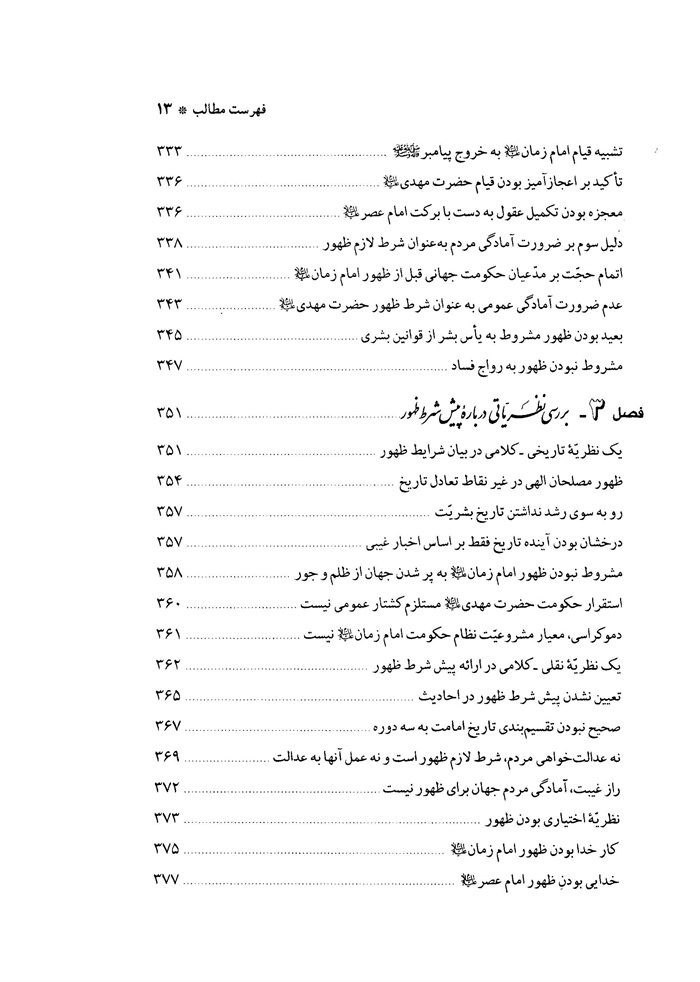 فهرست مطالب * ۱۳
تشبیه قیام امام زمان علیه‌السلام به خروج پیامبر ﷺ ........ ۳۳۳
تأکید بر اعجازآمیز بودن قیام حضرت مهدی علیه‌السلام ........ ۳۳۶
معجزه بودن تکمیل عقول به دست با برکت امام عصر علیه‌السلام ........ ۳۳۶
دلیل سوم بر ضرورت آمادگی مردم به‌عنوان شرط لازم ظهور ........ ۳۳۸
اتمام حجّت بر مدّعیان حکومت جهانی قبل از ظهور امام زمان علیه‌السلام ........ ۳۴۱
عدم ضرورت آمادگی عمومی به عنوان شرط ظهور حضرت مهدی علیه‌السلام ........ ۳۴۳
بعید بودن ظهور مشروط به یأس بشر از قوانین بشری ........ ۳۴۵
مشروط نبودن ظهور به رواج فساد ........ ۳۴۷
فصل ۳ - بررسی نظریّاتی دربارهٔ پیش شرط ظهور ........ ۳۵۱
یک نظریّهٔ تاریخی -کلامی در بیان شرایط ظهور ........ ۳۵۱
ظهور مصلحان الهی در غیر نقاط تعادل تاریخ ........ ۳۵۴
رو به سوی رشد نداشتن تاریخ بشریّت ........ ۳۵۷
درخشان بودن آینده تاریخ فقط بر اساس اخبار غیبی ........ ۳۵۷
مشروط نبودن ظهور امام زمان علیه‌السلام به پر شدن جهان از ظلم و جور ........ ۳۵۸
استقرار حکومت حضرت مهدی علیه‌السلام مستلزم کشتار عمومی نیست ........ ۳۶۰
دموکراسی، معیار مشروعیّت نظام حکومت امام زمان علیه‌السلام نیست ........ ۳۶۱
یک نظریّهٔ نقلی -کلامی در ارائه پیش شرط ظهور ........ ۳۶۲
تعیین نشدن پیش شرط ظهور در احادیث ........ ۳۶۵
صحیح نبودن تقسیم‌بندی تاریخ امامت به سه دوره ........ ۳۶۷
نه عدالت‌خواهی مردم، شرط لازم ظهور است و نه عمل آنها به عدالت ........ ۳۶۹
راز غیبت، آمادگی مردم جهان برای ظهور نیست ........ ۳۷۲
نظریّهٔ اختیاری بودن ظهور ........ ۳۷۳
کار خدا بودن ظهور امام زمان علیه‌السلام ........ ۳۷۵
خدایی بودنِ ظهور امام عصر علیه‌السلام ........ ۳۷۷